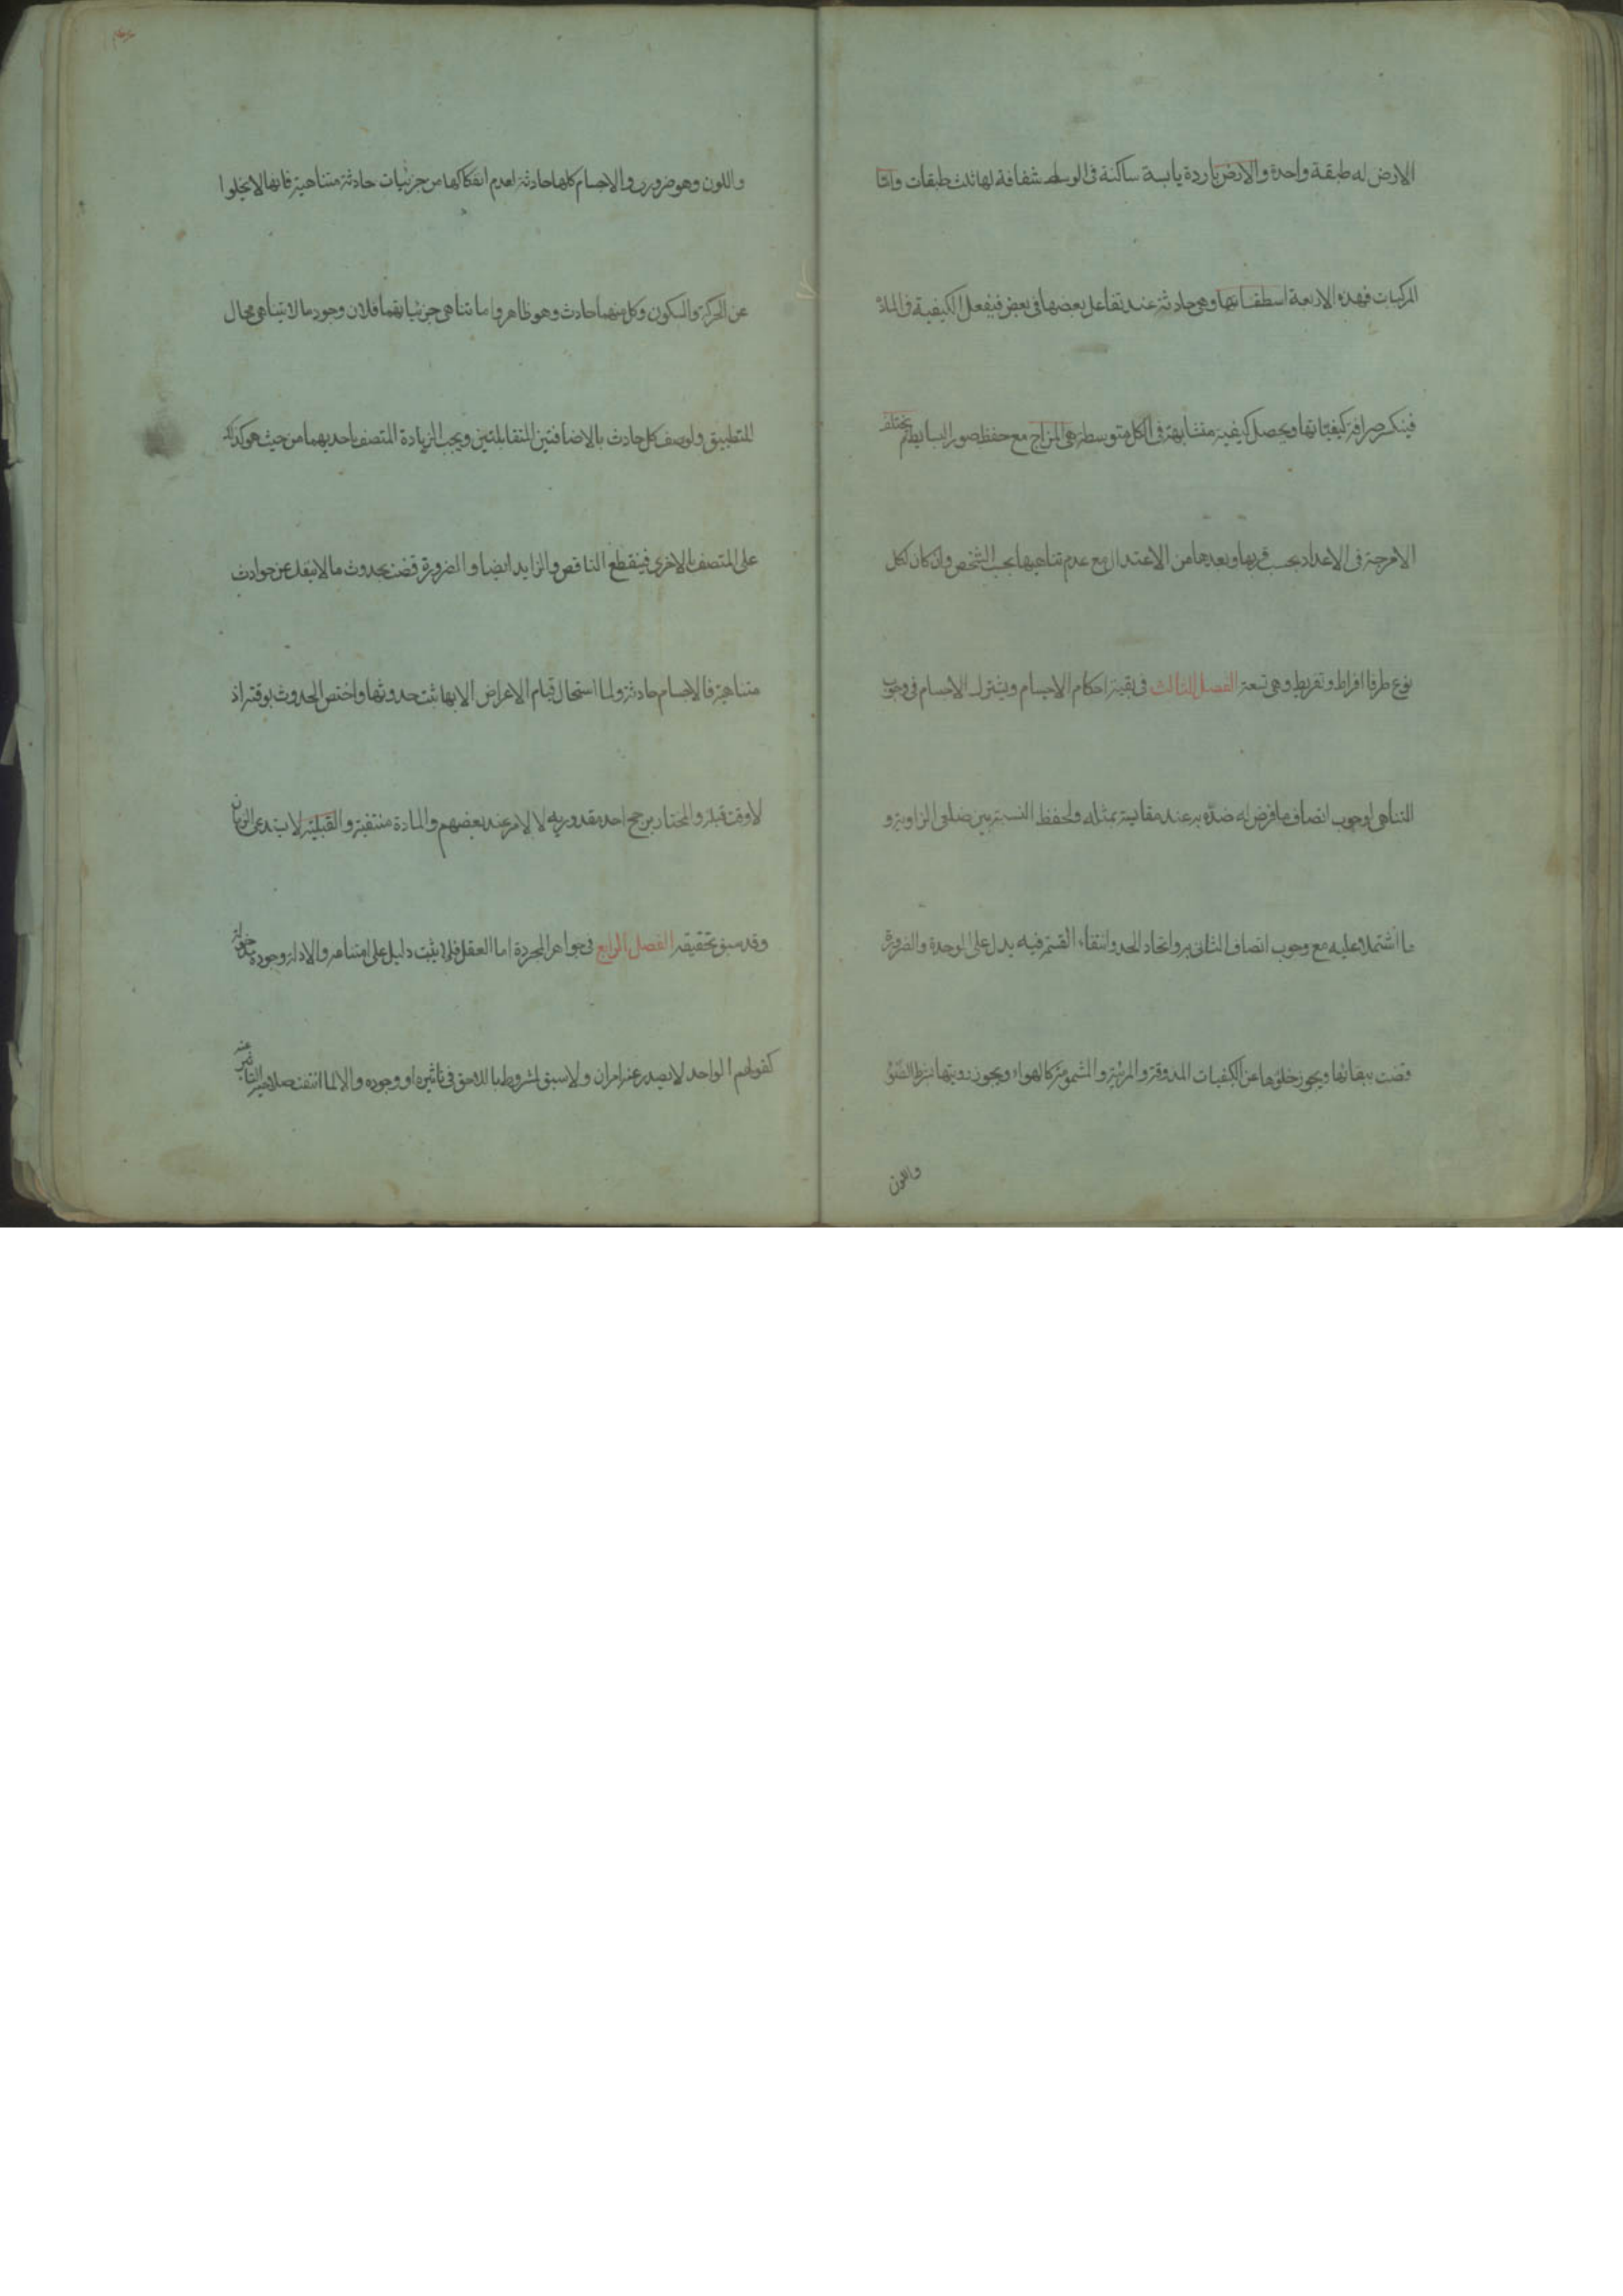 الارض له طبقة واحدة والارض باردة يابسة ساكنة فى الوسط شفافة لها ثلث طبقات واما
المركبات فهذه الاربعة اسطقساتها وهى حادثة عند تفاعل بعضها فى بعض فيفعل الكيفية فى المادة
فينكسر صرافة كيفياتها ويحصل كيفية متشابهة فى الكل متوسطة هى المزاج مع حفظ صور البسايط ثم يختلف
الامزجة فى الاعداد بحسب قربها وبعدها من الاعتدال مع عدم تناهيها بحسب الشخص وان كان لكل
نوع طرفا افراط وتفريط وهى تسعة الفصل الثالث فى بقية احكام الاجسام ويشترك الاجسام فى وجوب
التناهى لوجوب اتصاف ما فرض له ضده به عند مقايسته بمثله ولحفظ النسبة بين ضلعى الزاوية و
ما اشتملا عليه مع وجوب اتصاف الثانى به واتحاد الحد وانتفاء القسمة فيه يدل على الوحدة والضرورة
قضت ببقائها ويجوز خلوها عن الكيفيات المذوقة والمرئية والمشمومة كالهواء ويجوز رويتها بشرط الضوء
واللون
واللون وهو ضرورى والاجسام كلها حادثة لعدم انفكاكها من جزئيات حادثة متناهية فانها لا يخلوا
عن الحركة والسكون وكل منهما حادث وهو ظاهر واما تناهى جزئياتهما فلان وجود ما لا يتناهى محال
للتطبيق ولوصف كل حادث بالاضافتين المتقابلتين ويجب الزيادة المتصف باحديهما من حيث هو كذلك
على المتصف بالاخرى فينقطع الناقص والزايد ايضا والضرورة قضت بحدوث ما لا ينفك عن حوادث
متناهية فالاجسام حادثة ولما استحال قيام الاعراض الا بها ثبت حدوثها واختص الحدوث بوقته اذ
لا وقت قبله والمختار يرجح احد مقدوريه لا لامر عند بعضهم والمادة منتفية والقبلية لا يستدعى الزمان
وقد سبق تحقيقه الفصل الرابع فى جواهر المجردة اما العقل فلا يثبت دليل على امتناعه والادلة وجوده مدخولة
كقولهم الواحد لا يصدر عنه امران ولا سبق لمشروط باللاحق فى تاثيره او وجوده والا لما انتفت صلاحية التاثير عنه